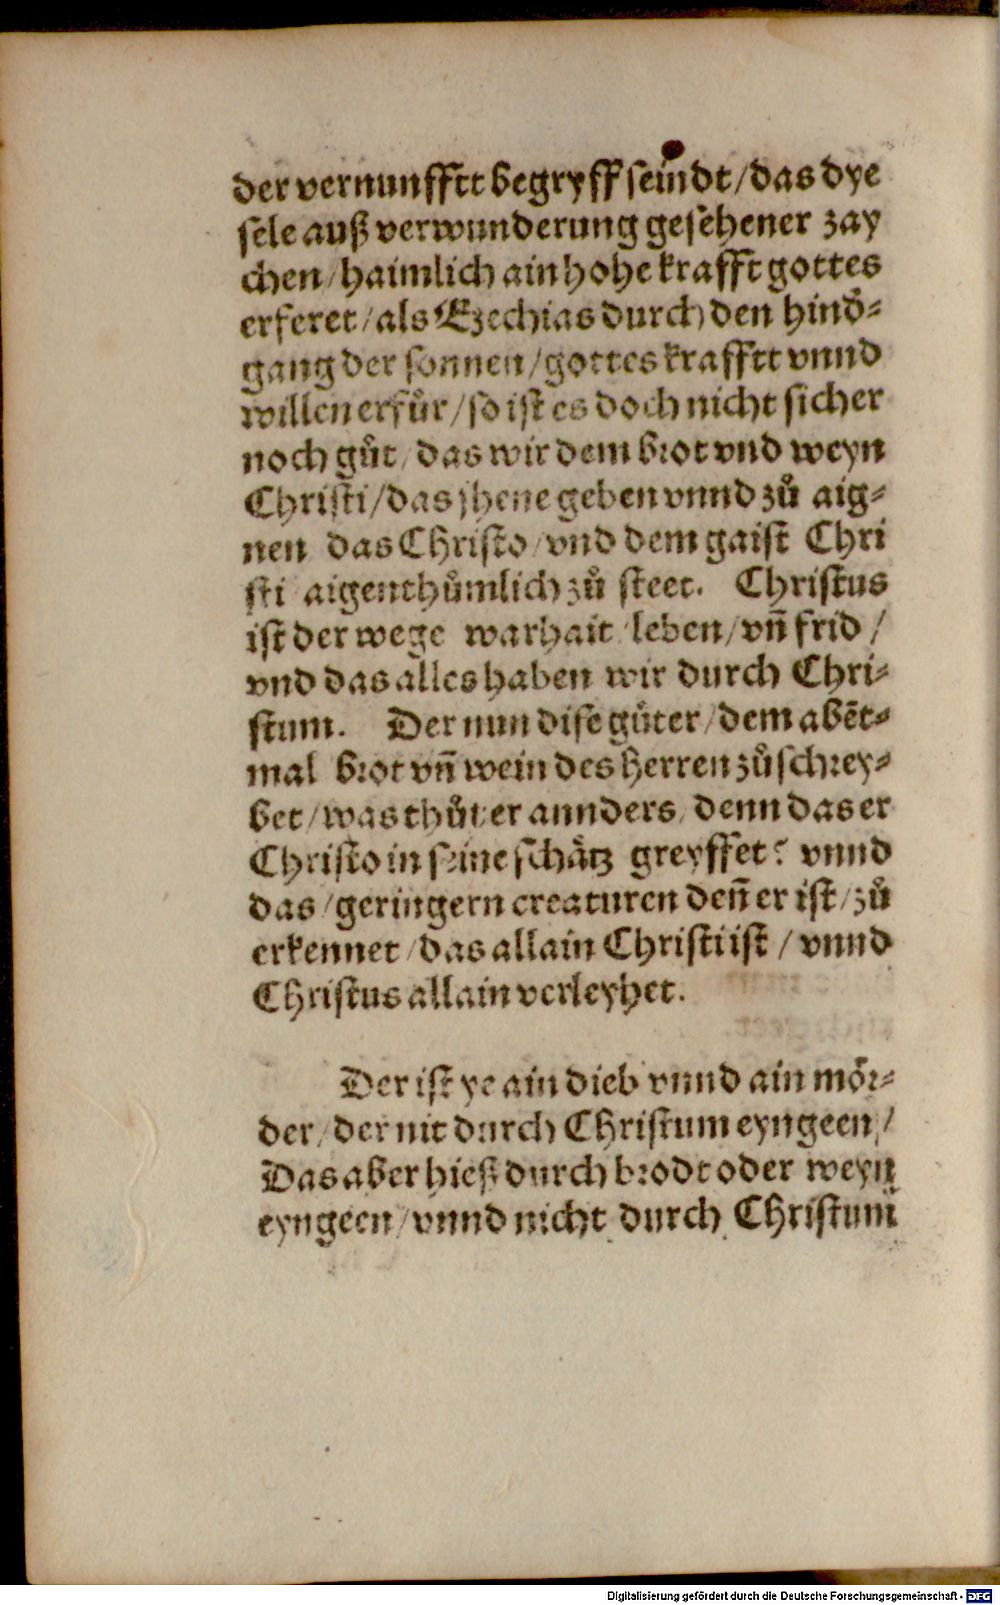 der vernunfftt begryff seindt/das dye
sele auß verwunderung gesehener zay
chen/haimlich ain hohe krafft gottes
erferet/als Ezechias durch den hindͤ⸗
gang der sonnen/gottes krafftt vnnd
willen erfůr/so ist es doch nicht sicher
noch gůt/das wir dem brot vnd weyn
Christi/das jhene geben vnnd zů aig⸗
nen das Christo/vnd dem gaist Chri
sti aigenthůmlich zů steet. Christus
ist der wege warhait/leben/vñ frid/
vnd das alles haben wir durch Chri⸗
stum. Der nun dise gůter/dem abẽt⸗
mal brot vñ wein des herren zůschrey⸗
bet/was thůt er annders/denn das er
Christo in seine schåtz greyffet? vnnd
das/geringern creaturen deñ er ist/zů
erkennet/das allain Christi ist/vnnd
Christus allain verleyhet.
Der ist ye ain dieb vnnd ain mör⸗
der/der nit durch Christum eyngeen/
Das aber hieß durch brodt oder weyn
eyngeen/vnnd nicht durch Christum
Digitalisierung gefördert durch die Deutsche Forschungsgemeinschaft - DFG